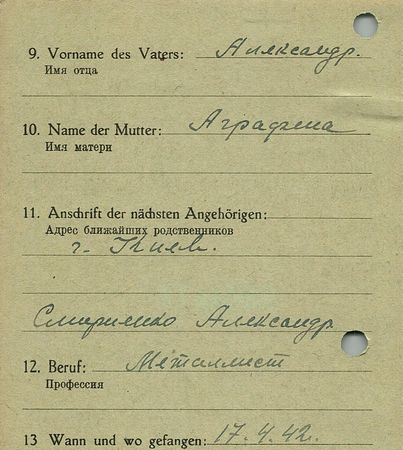 9. Vorname des Vaters: Александр.
Имя отца
10. Name der Mutter: Аграфена
Имя матери
11. Anschrift der nächsten Angehörigen:
Адрес ближайших родственников
г. Киев.
Смириенко Александр
12. Beruf: Металлист
Профессия
13 Wann und wo gefangen: 17.4.42.